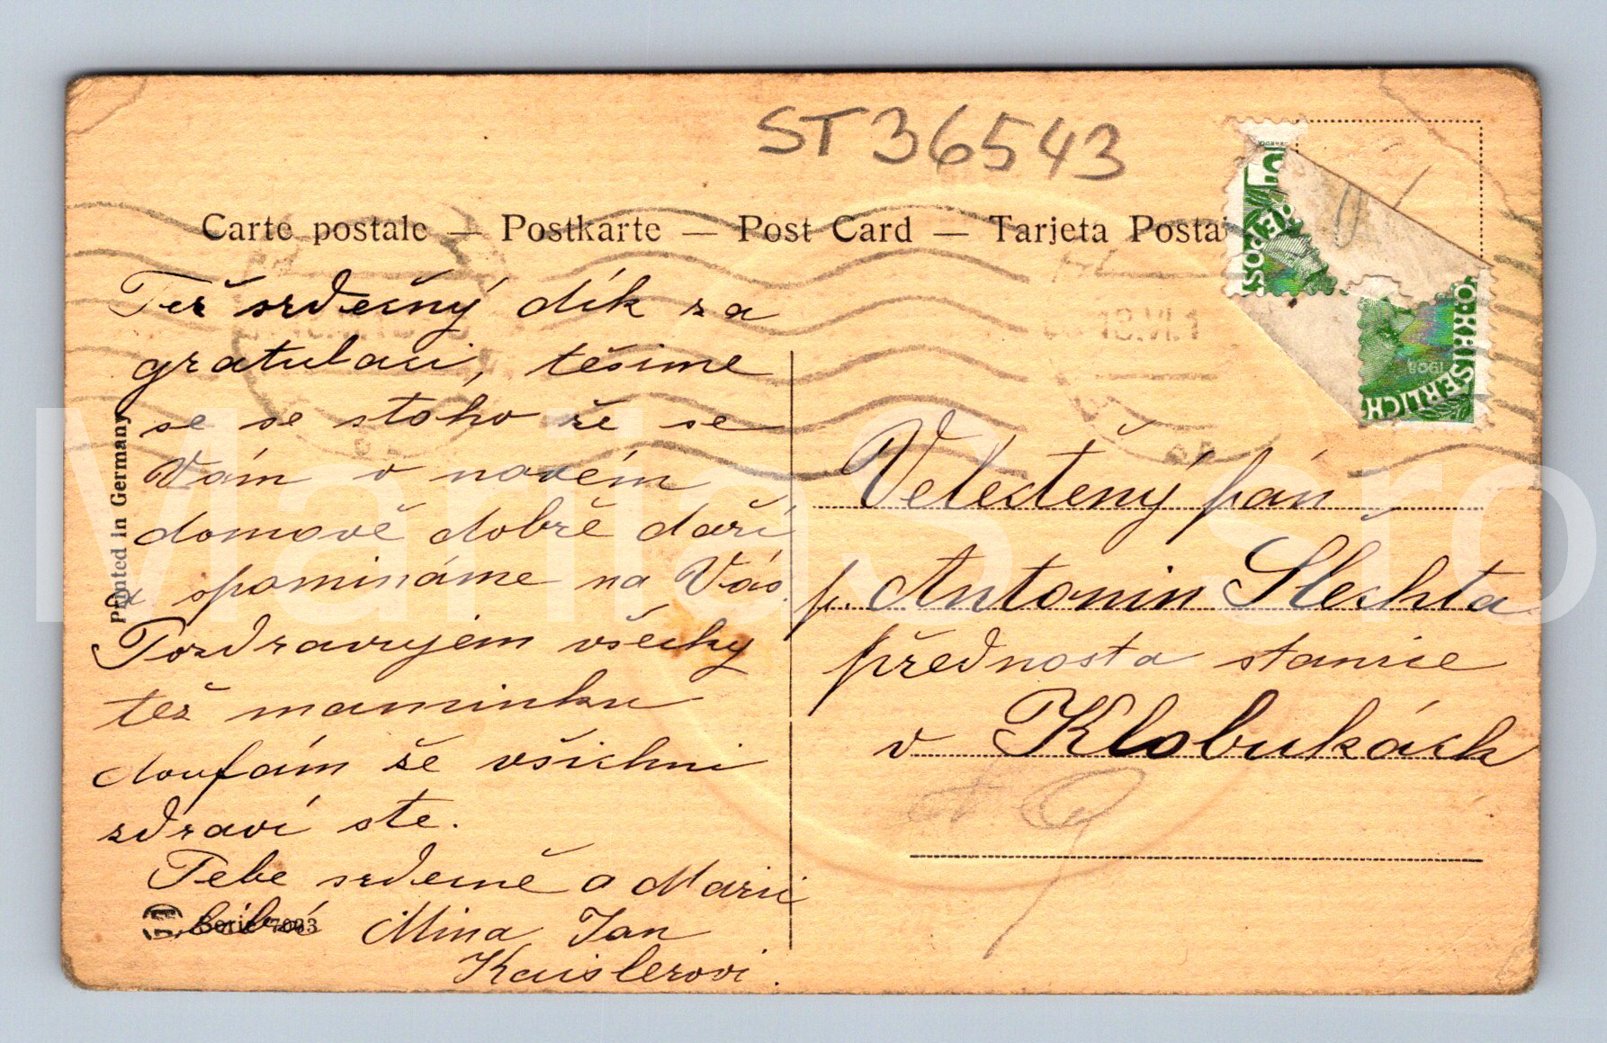 ST36543
Carte postale — Postkarte — Post Card — Tarjeta Postal
Též srdečný dík za
gratulaci, těšíme
se se stoho že se
Vám v novém
domově dobře daří
a spomináme na Vás.
Pozdravujem všecky
též maminku
doufám že všichni
zdraví ste.
Tebe srdečně a Marii
líbá Mina Jan
Kaislerovi.
Printed in Germany
Serie 7033
Velectěný pán
p. Antonin Šlechta
přednosta stanice
v Klobukách
18.VI.1
1908
MaritaS s.r.o